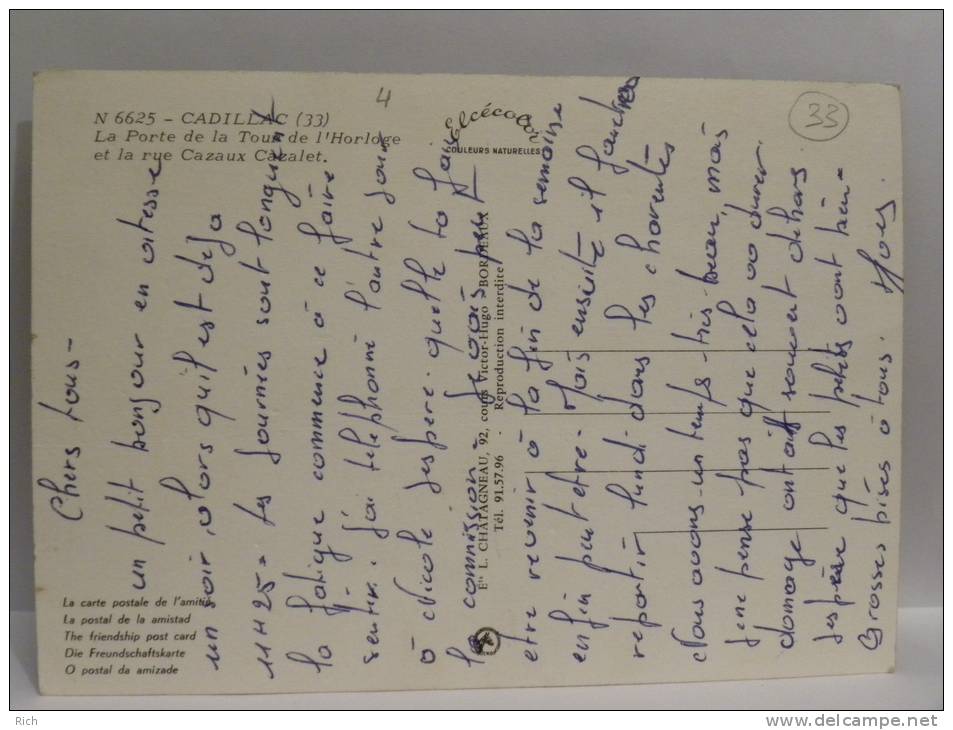 N 6625 - CADILLAC (33)
La Porte de la Tour de l'Horloge
et la rue Cazaux Cazalet.
4
Elcécolor
COULEURS NATURELLES
33
La carte postale de l'amitié
La postal de la amistad
The friendship post card
Die Freundschaftskarte
O postal da amizade
Ets L. CHATAGNEAU, 92, cours Victor-Hugo - BORDEAUX
Tél. 91.57.96 - Reproduction interdite
Chers tous -
un petit bonjour en vitesse
un soir, alors qu'il est deja
11H25 - les journées sont longues et
la fatigue commence à ce faire
sentir. J'ai telephoné l'autre jour
à Nicole j'espere quelle ta fait
la commission - Je vais peut
etre revenir à la fin de la semaine
enfin peut etre - Mais ensuite il faudra
repartir lundi dans les charentes
Nous avons un temps très beau, mais
je ne pense pas que cela va durer.
domage on tait souvent dehors
J'espère que les petits vont bien -
Grosses bises à tous.
Rich
delcampe.net